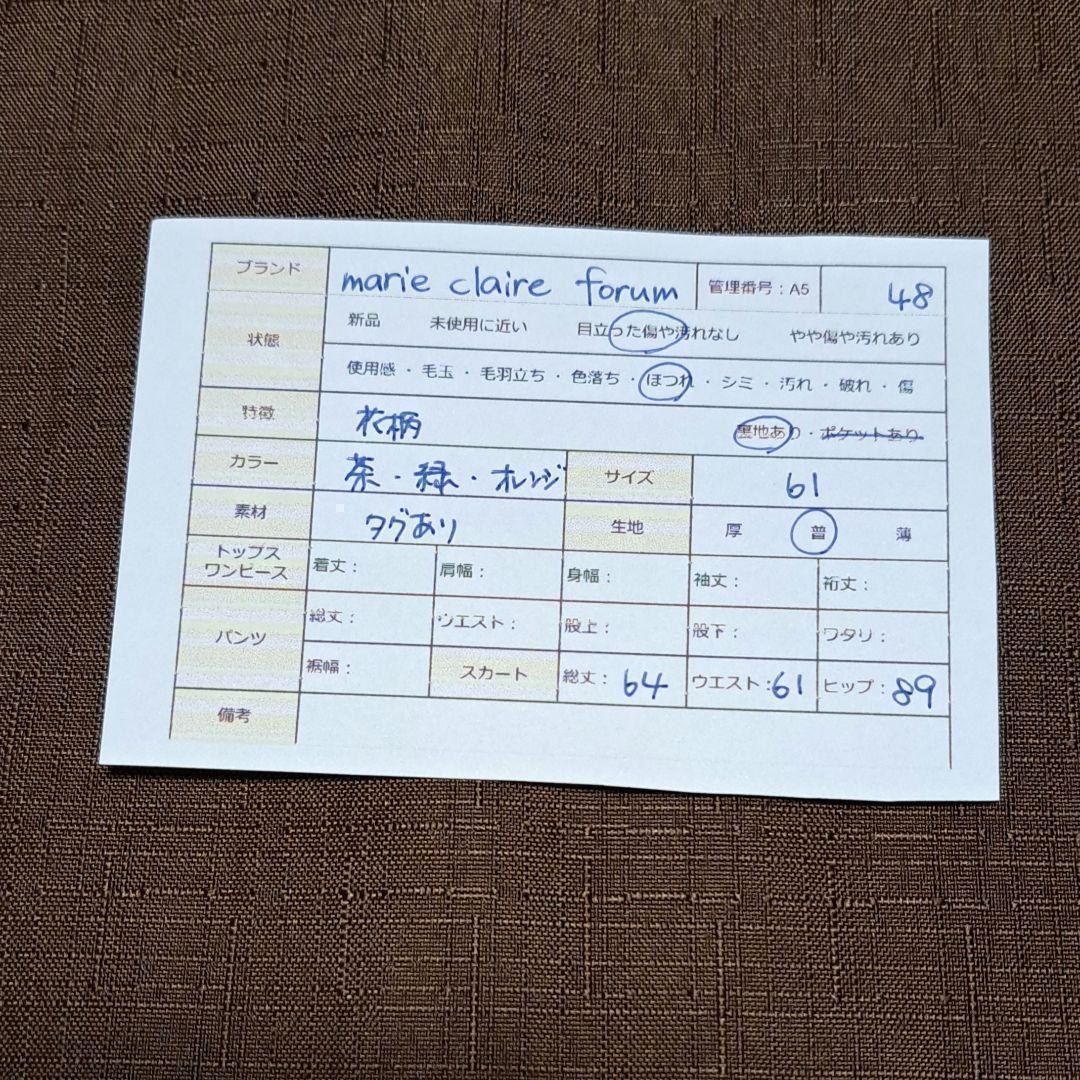 ブランド marie claire forum 管理番号：A5 48
状態 新品 未使用に近い 目立った傷や汚れなし やや傷や汚れあり
使用感・毛玉・毛羽立ち・色落ち・ほつれ・シミ・汚れ・破れ・傷
特徴 花柄 裏地あり・ポケットあり
カラー 茶・緑・オレンジ サイズ 61
素材 タグあり 生地 厚 普 薄
トップス
ワンピース 着丈： 肩幅： 身幅： 袖丈： 裄丈：
パンツ 総丈： ウエスト： 股上： 股下： ワタリ：
裾幅： スカート 総丈：64 ウエスト：61 ヒップ：89
備考